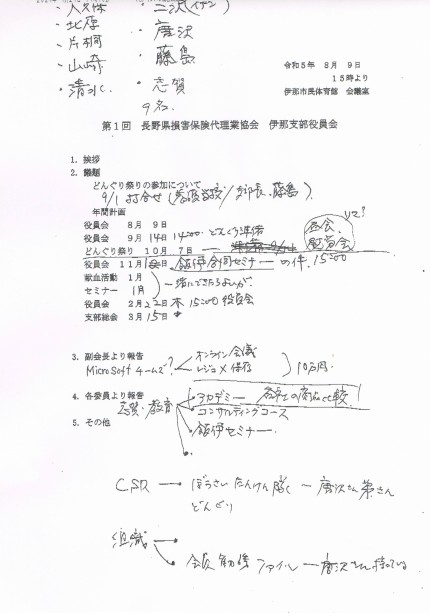 ・久保 ・三沢(イナン)
・北原 ・唐沢
・片桐
・山崎 ・藤島
・清水 ・志賀
9名.
令和5年 8月 9日
15時より
伊那市民体育館 会議室
第1回 長野県損害保険代理業協会 伊那支部役員会
1. 挨拶
2. 議題
どんぐり祭りの参加について
9/1 打合せ( 支部長、藤島).
年間計画
役員会 8月 9日
役員会 9月 14日 14:00~ どんぐり準備
どんぐり祭り 10月 7日
役員会 11月 飯伊合同セミナーの件. 15:00
昼食、
献血活動 1月
セミナー 1月 一緒にできたらよいが.
役員会 2月22日 木 15:00 役員会
支部総会 3月15日
3. 副会長より報告
Microsoftチームズ? オンライン会議
レジュメ保存 10万円.
4. 各委員より報告
志賀・教育 アカデミー 各社の商品比較
コンサルティングコース
5. その他
・飯伊セミナー
CSR → ぼうさいたんけん隊 ー 唐沢さん
どんぐり
組織
ファイル ー 唐沢さん持っている